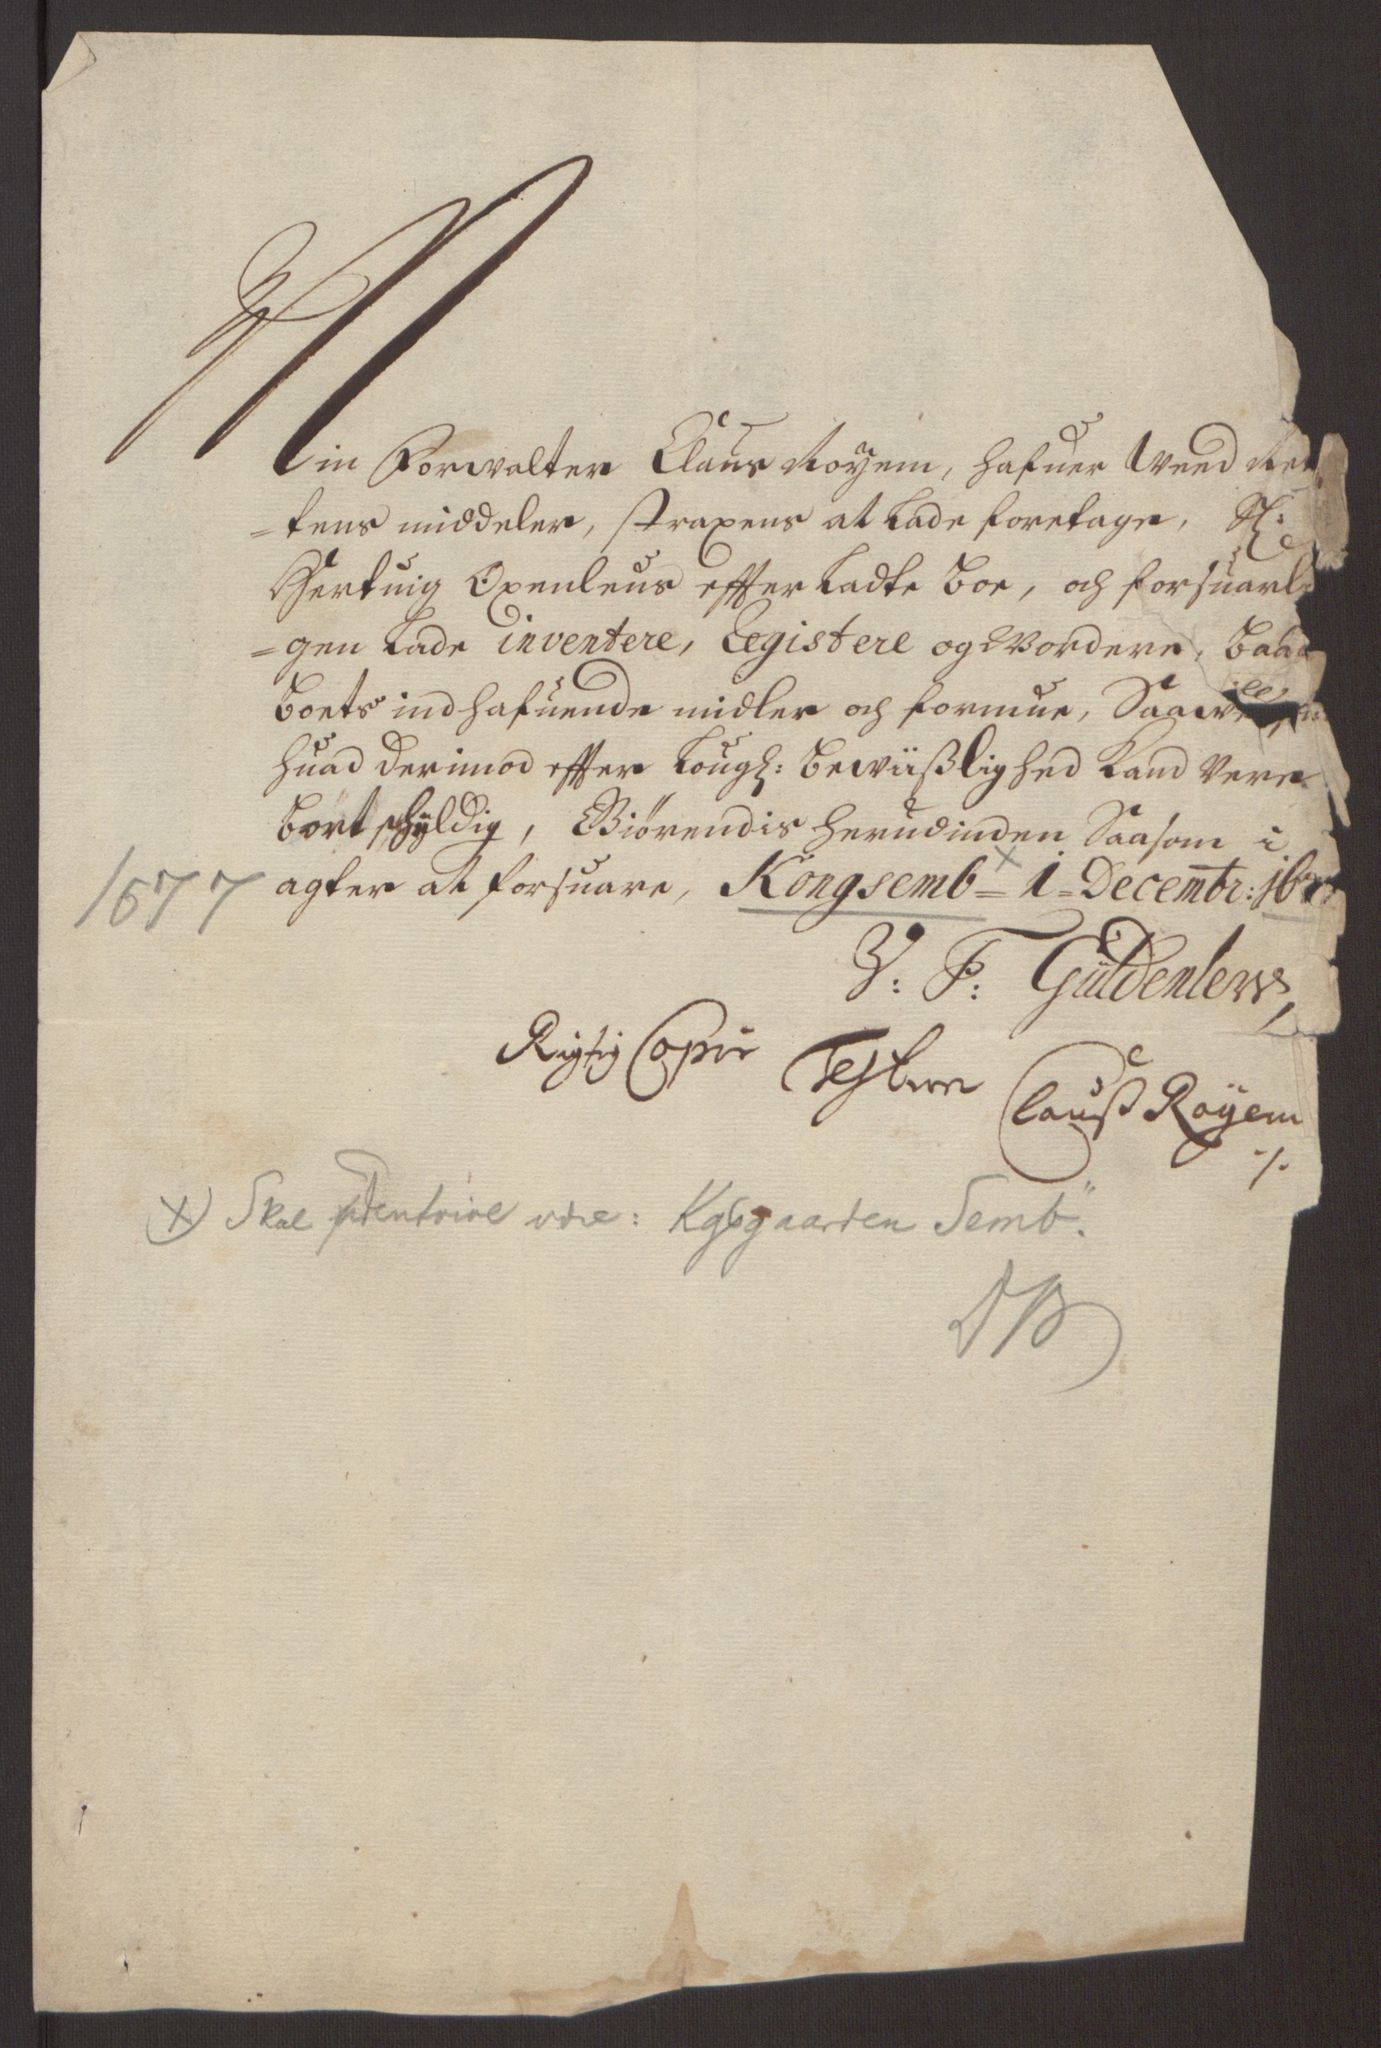 Min Forwalter Claus Røyem, hafuer Weed Ret
=tens middeler, straxens at Lade foretage, Sl:
Hertuig Oxenleus effter Ladte Boe, och forsuarl
=gen Lade inventere, Registere og Wordere, Baade
Boets indhafuende midler och formue, Saawel
huad derimod effter Lough: bewiißlighed kand Vere
bortschyldig, Giørendis herudinden Saasom i
1677 agter at forsuare, Kongsemb = 1 = Decembr: 167
U: F: Güldenlew
Rigtig Copie Testerer Clauß Røyem
./.
x) Skal være: Kgsgaarden Semb".